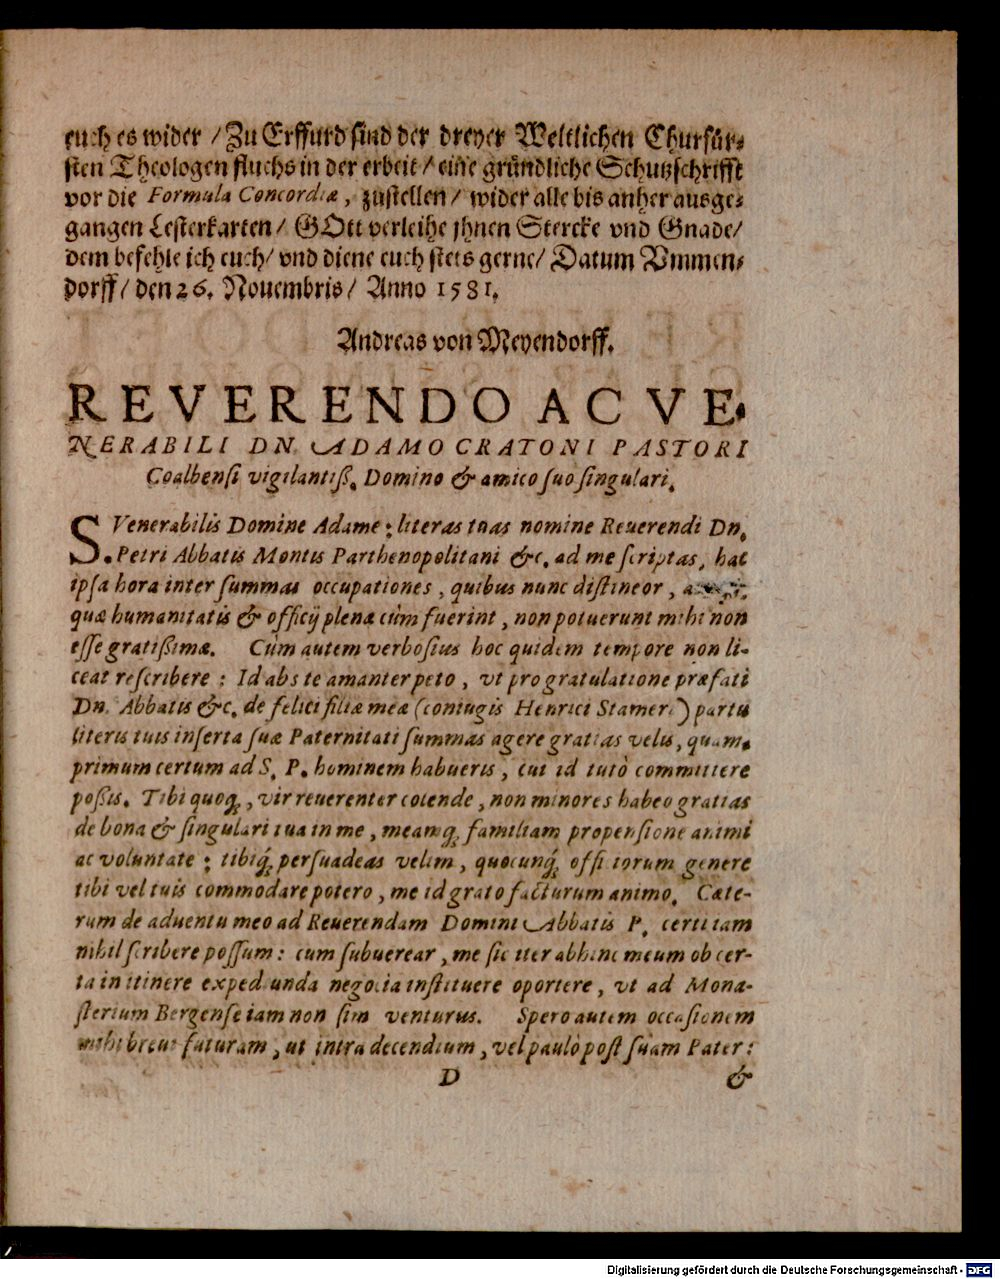 euch es wider / Zu Erffurd sind der dreyer Weltlichen Churfür-
sten Theologen fluchs in der erbeit / eine gründliche Schutzschrifft
vor die Formula Concordiæ, zustellen / wider alle bis anher ausge-
gangen Lesterkarten / GOtt verleihe jhnen Stercke vnd Gnade /
dem befehle ich euch / vnd diene euch stets gerne / Datum Vmmen-
dorff / den 26. Nouembris / Anno 1581.
Andreas von Meyendorff.
REVERENDO AC VE-
NERABILI DN. ADAMO CRATONI PASTORI
Coalbensi vigilantiß. Domino & amico suo singulari.
S. Venerabilis Domine Adame: literas tuas nomine Reuerendi Dn.
Petri Abbatis Montis Parthenopolitani &c. ad me scriptas, hac
ipsa hora inter summas occupationes, quibus nunc distineor,
quæ humanitatis & officij plenæ cùm fuerint, non potuerunt mihi non
esse gratißimæ. Cùm autem verbosius hoc quidem tempore non li-
ceat rescribere: Id abs te amanter peto, vt pro gratulatione præfati
Dn. Abbatis &c. de felici filiæ meæ (coniugis Henrici Stameri) partu
literis tuis inserta suæ Paternitati summas agere gratias velis, quam-
primum certum ad S. P. hominem habueris, cui id tutò committere
poßis. Tibi quoq;, vir reuerenter colende, non minores habeo gratias
de bona & singulari tua in me, meamq; familiam propensione animi
ac voluntate; tibiq́; persuadeas velim, quocunq́; officiorum genere
tibi vel tuis commodare potero, me id grato facturum animo. Cæte-
rum de aduentu meo ad Reuerendam Domini Abbatis P. certi iam
nihil scribere possum: cum subuerear, me sic iter abhinc meum ob cer-
ta in itinere expediunda negocia instituere oportere, vt ad Mona-
sterium Bergense iam non sim venturus. Spero autem occasionem
mihi breui futuram, ut intra decendium, vel paulò post suam Pater:
D &
Digitalisierung gefördert durch die Deutsche Forschungsgemeinschaft - DFG